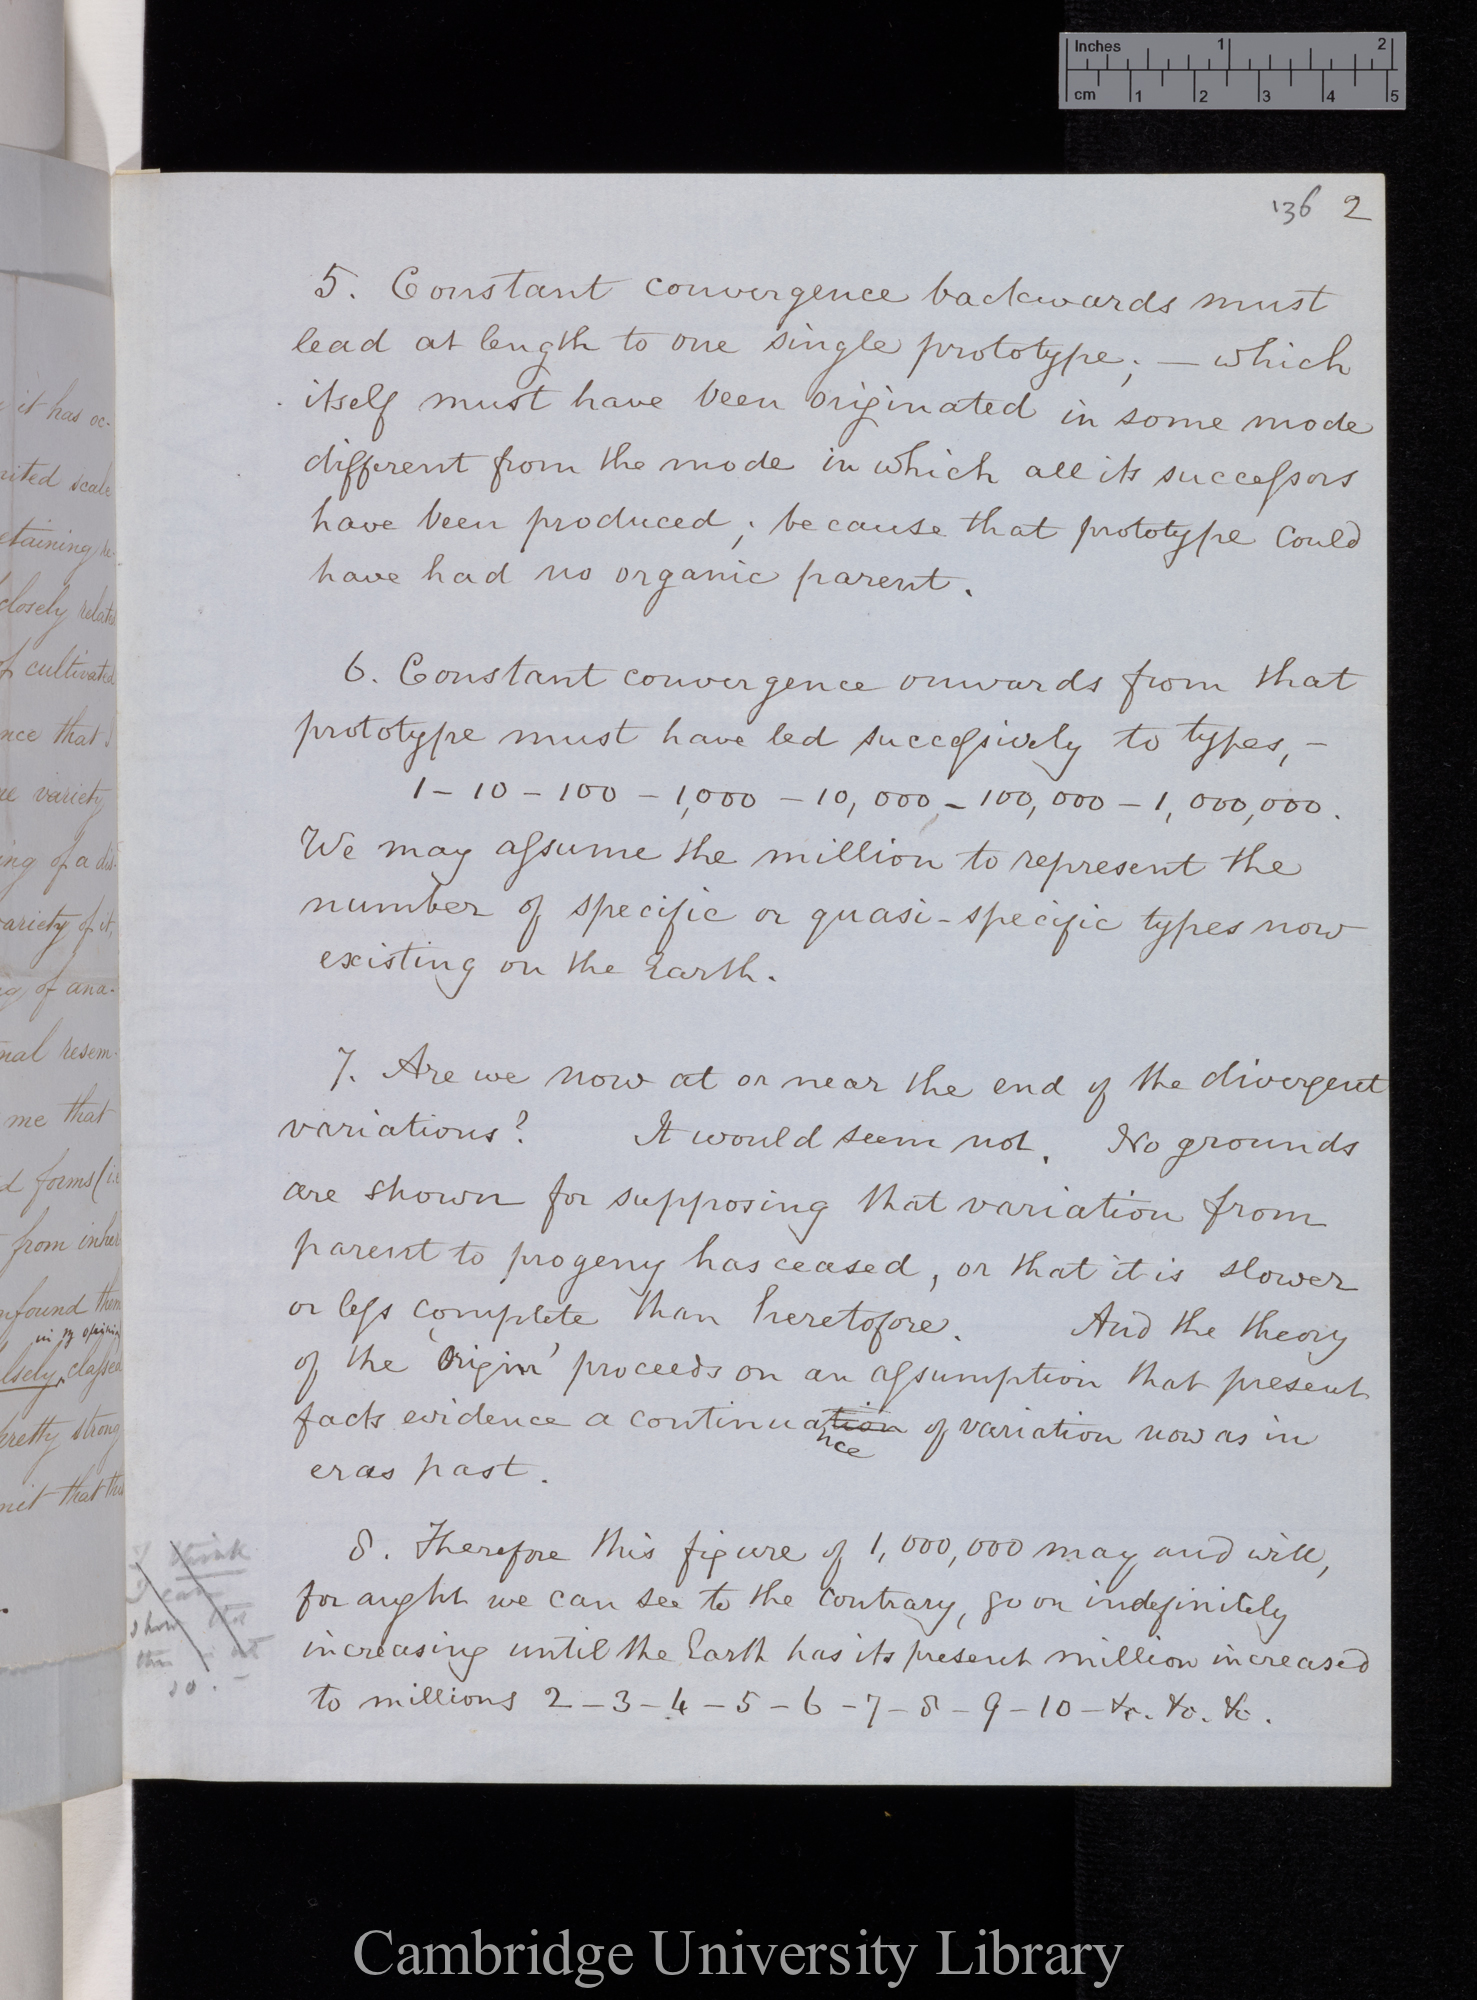 Inches 1 2
cm 1 2 3 4 5
136 2
5. Constant convergence backwards must
lead at length to one single prototype; — which
itself must have been originated in some mode
different from the mode in which all its successors
have been produced; because that prototype could
have had no organic parent.
6. Constant convergence onwards from that
prototype must have led successively to types, —
1 – 10 – 100 – 1,000 – 10,000 – 100,000 – 1,000,000.
We may assume the million to represent the
number of specific or quasi-specific types now
existing on the Earth.
7. Are we now at or near the end of the divergent
variations? It would seem not. No grounds
are shown for supposing that variation from
parent to progeny has ceased, or that it is slower
or less complete than heretofore. And the theory
of the 'Origin' proceeds on an assumption that present
facts evidence a continuation of variation now as in
nce
eras past.
8. Therefore this figure of 1,000,000 may and will,
for aught we can see to the contrary, go on indefinitely
increasing until the Earth has its present million increased
to millions 2 – 3 – 4 – 5 – 6 – 7 – 8 – 9 – 10 – &c. &c. &c.
I think
I can
show that
this is not
so. —
it has oc-
scale
etaining
closely
of cultivated
nce that I
variety
ing of a dis-
variety of it,
of ana-
nal resem-
me that
forms (i.e
from inher
nfound them
in my opinion
lsely, classed
pretty strong
mit that
Cambridge University Library